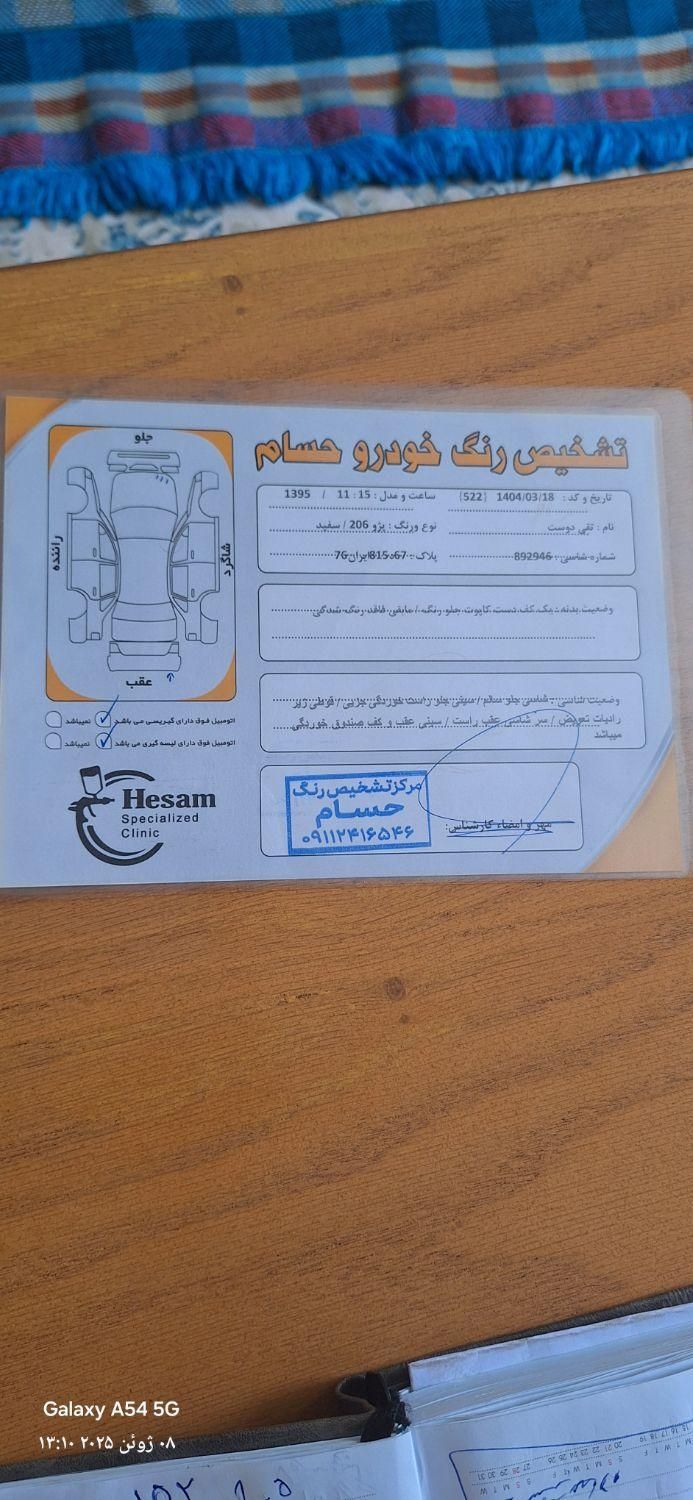 تشخیص رنگ خودرو حسام
تاریخ و کد : 1404/03/18 {522} ساعت و مدل : 15 : 11 / 1395
نام : تقی دوست نوع ورنگ : پژو 206 / سفید
شماره شاسی : 892946 پلاک : 67د815ایران76
وضعیت بدنه : یک کف دست کاپوت جلو رنگ / مابقی فاقد رنگ شدگی
وضعیت شاسی : شاسی جلو سالم / سینی جلو راست خوردگی جزیی / قوطی زیر
رادیات تعویض / سر شاسی عقب راست / سینی عقب و کف صندوق خوردگی
میباشد
مهر و امضاء کارشناس:
مرکز تشخیص رنگ
حسام
۰۹۱۱۲۴۱۶۵۴۶
جلو
راننده
شاگرد
عقب
اتومبیل فوق دارای گیریسی می باشد نمیباشد
اتومبیل فوق دارای لیسه گیری می باشد نمیباشد
Hesam
Specialized
Clinic
Galaxy A54 5G
۰۸ ژوئن ۲۰۲۵ ۱۳:۱۰